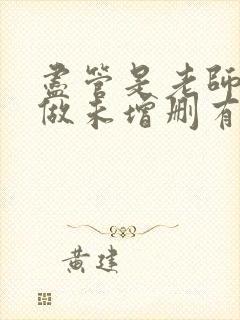 盡管是老師
做未增删有
黄建